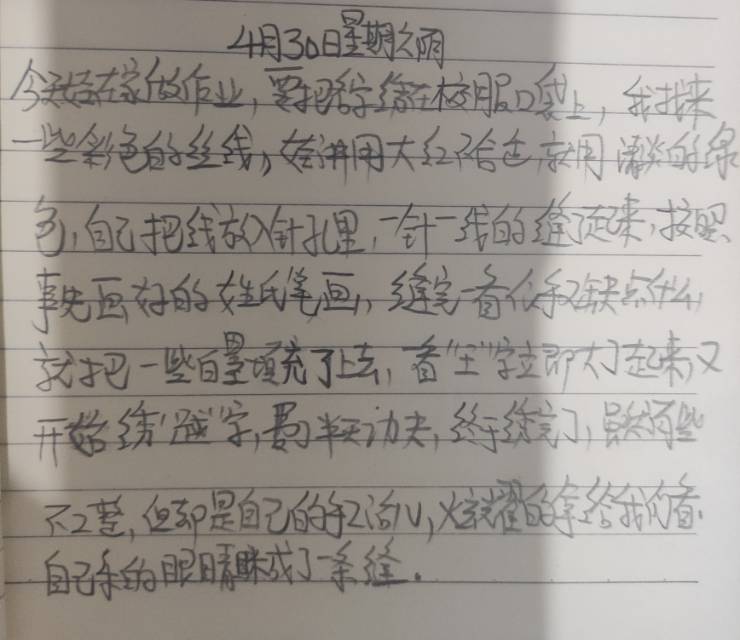 4月30日星期 阴
今天 在家做作业,要把 字绣在校服口袋上,我找来
一些彩色的丝线, 用大红 合适,就用 淡的绿
色,自己把线放入针孔里,一针一线的缝了起来,按照
事先画好的姓氏笔画,缝完一看似乎又缺点什么,
就把一些白 填充了上去,看"王"字立即大了起来,又
开始绣" "字,费了半天功夫,终于绣完了,虽然有些
不工整,但却是自己的手工活儿,炫耀的拿给我们看.
自己乐的眼睛眯成了一条缝.